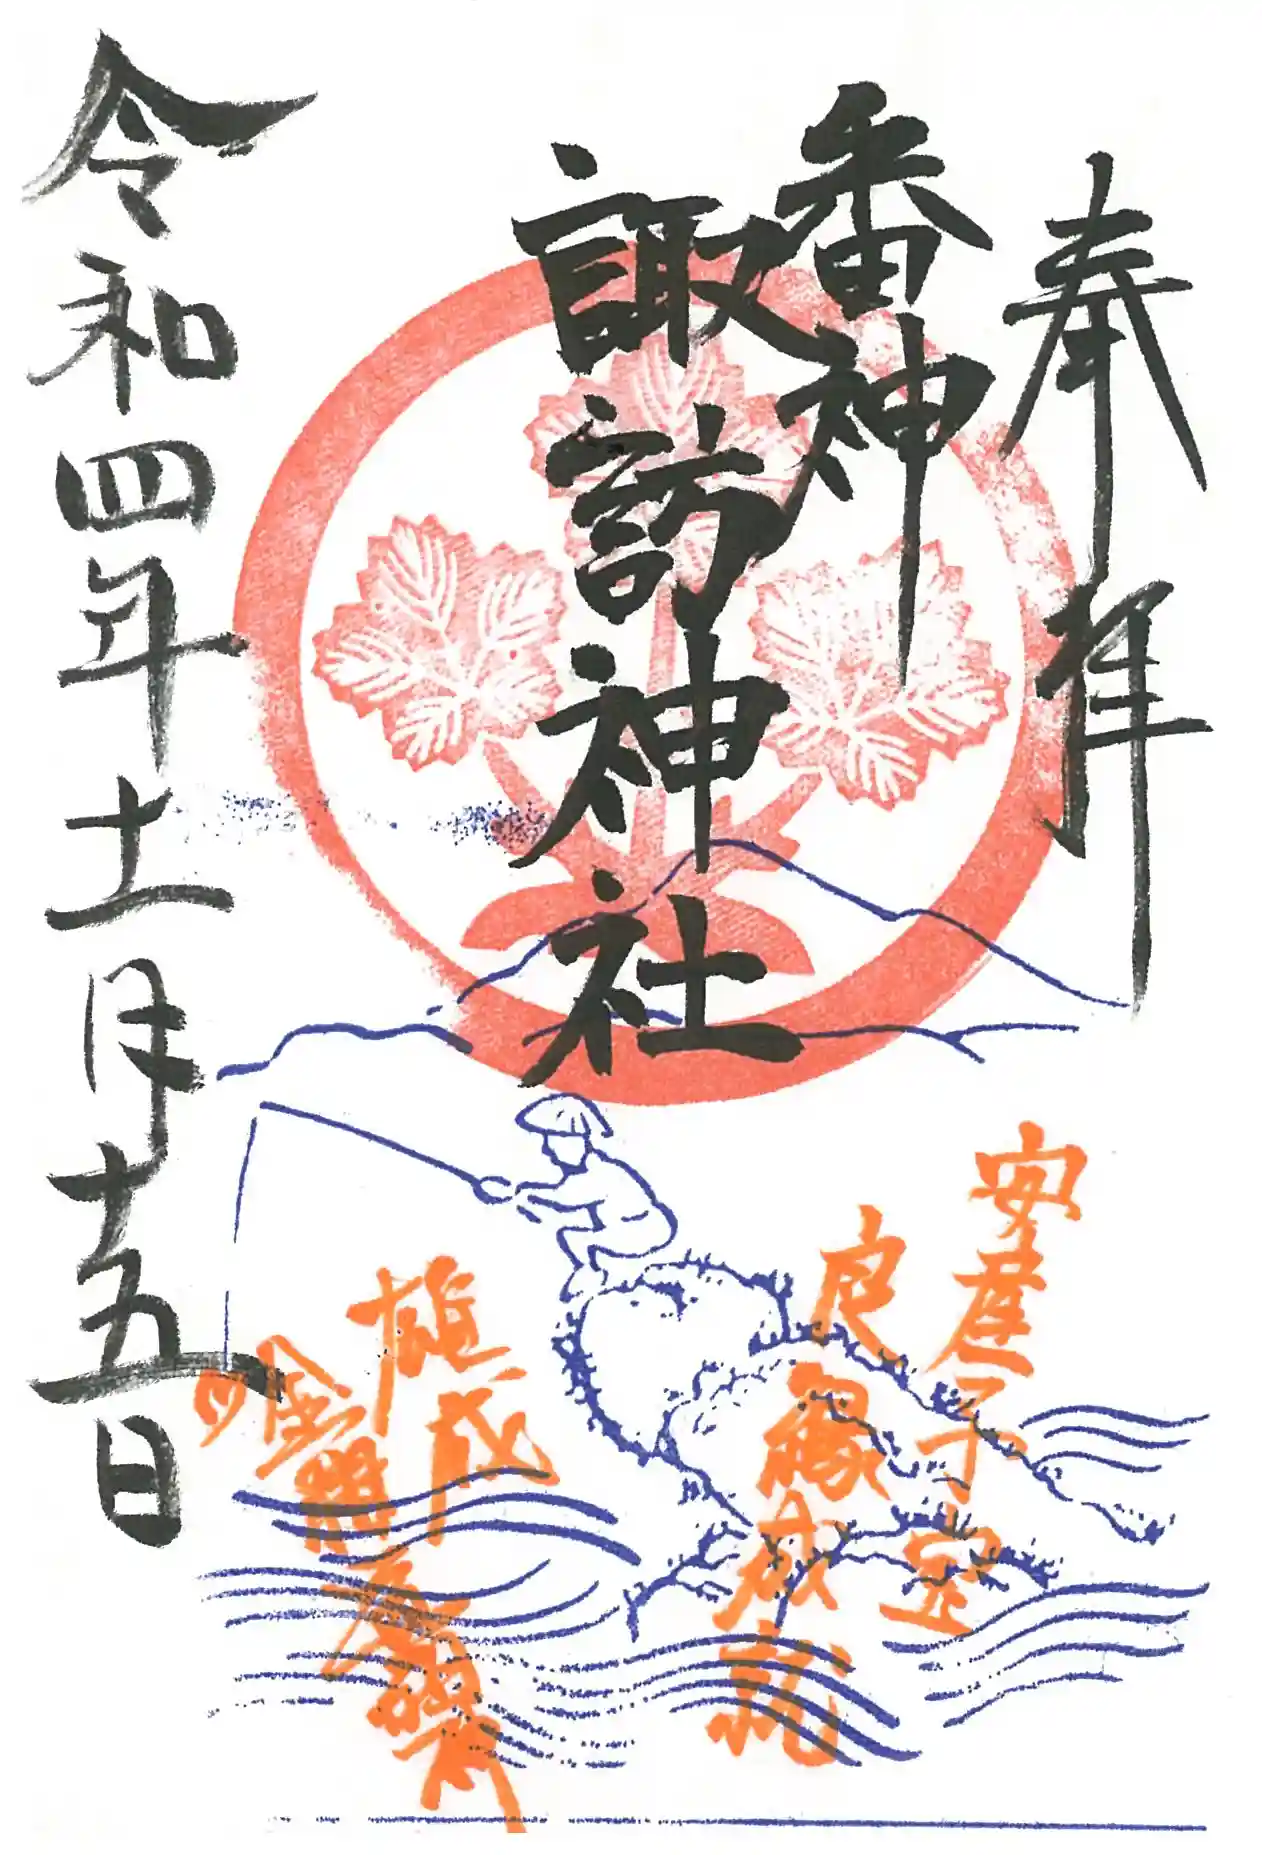 奉拝
番神
諏訪神社
令和四年十一月十五日
安産子宝
良縁成就